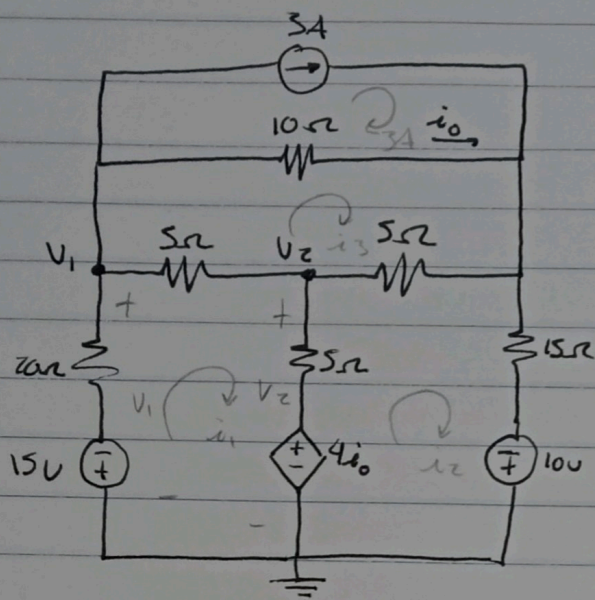 3A
10Ω
3A
i₀
V₁
5Ω
V₂
i₃
5Ω
+
+
20Ω
5Ω
15Ω
V₁
i₁
V₂
i₂
15V
- +
+ -
4i₀
- +
10V
-
-